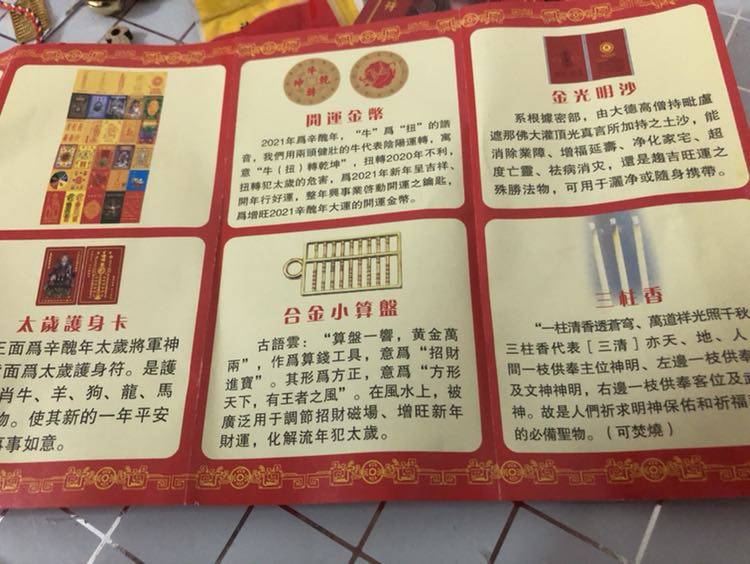 開運金幣
2021年爲辛醜年，“牛”爲“扭”的諧
音，我們用兩頭健壯的牛代表陰陽運轉，寓
意“牛（扭）轉乾坤”，扭轉2020年不利，
扭轉犯太歲的危害，爲2021年新年呈吉祥、
開年行好運，整年興事業啓動開運之鑰匙，
爲增旺2021辛醜年大運的開運金幣。
金光明沙
系根據密部，由大德高僧持毗盧
遮那佛大灌頂光真言所加持之土沙，能
消除業障、增福延壽、净化家宅、超
度亡靈、祛病消灾，還是趨吉旺運之
殊勝法物，可用于灑净或隨身携帶。
太歲護身卡
正面爲辛醜年太歲將軍神
面爲太歲護身符。是護
肖牛、羊、狗、龍、馬
物。使其新的一年平安
事如意。
合金小算盤
古語雲：“算盤一響，黃金萬
兩”，作爲算錢工具，意爲“招財
進寶”。其形爲方正，意爲“方形
天下，有王者之風”。在風水上，被
廣泛用于調節招財磁場、增旺新年
財運，化解流年犯太歲。
三柱香
“一柱清香透蒼穹、萬道祥光照千秋
三柱香代表［三清］亦天、地、人
間一枝供奉主位神明、左邊一枝供奉
及文神神明，右邊一枝供奉客位及
神。故是人們祈求明神保佑和祈福
的必備聖物。（可焚燒）